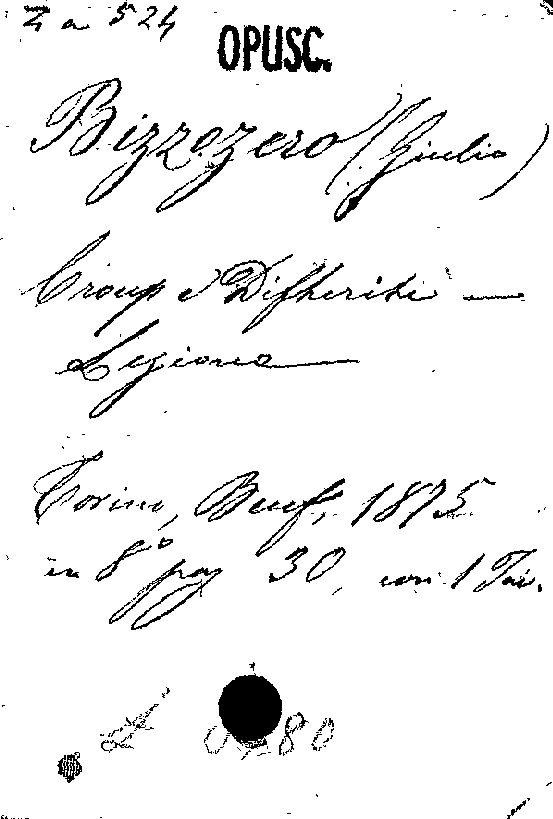 Z a 524
OPUSC.
Bizzozero (Giulio)
Croup e Difterite —
Lezione —
Torino, 1875
in 8° pag 30, con 1 Tav.